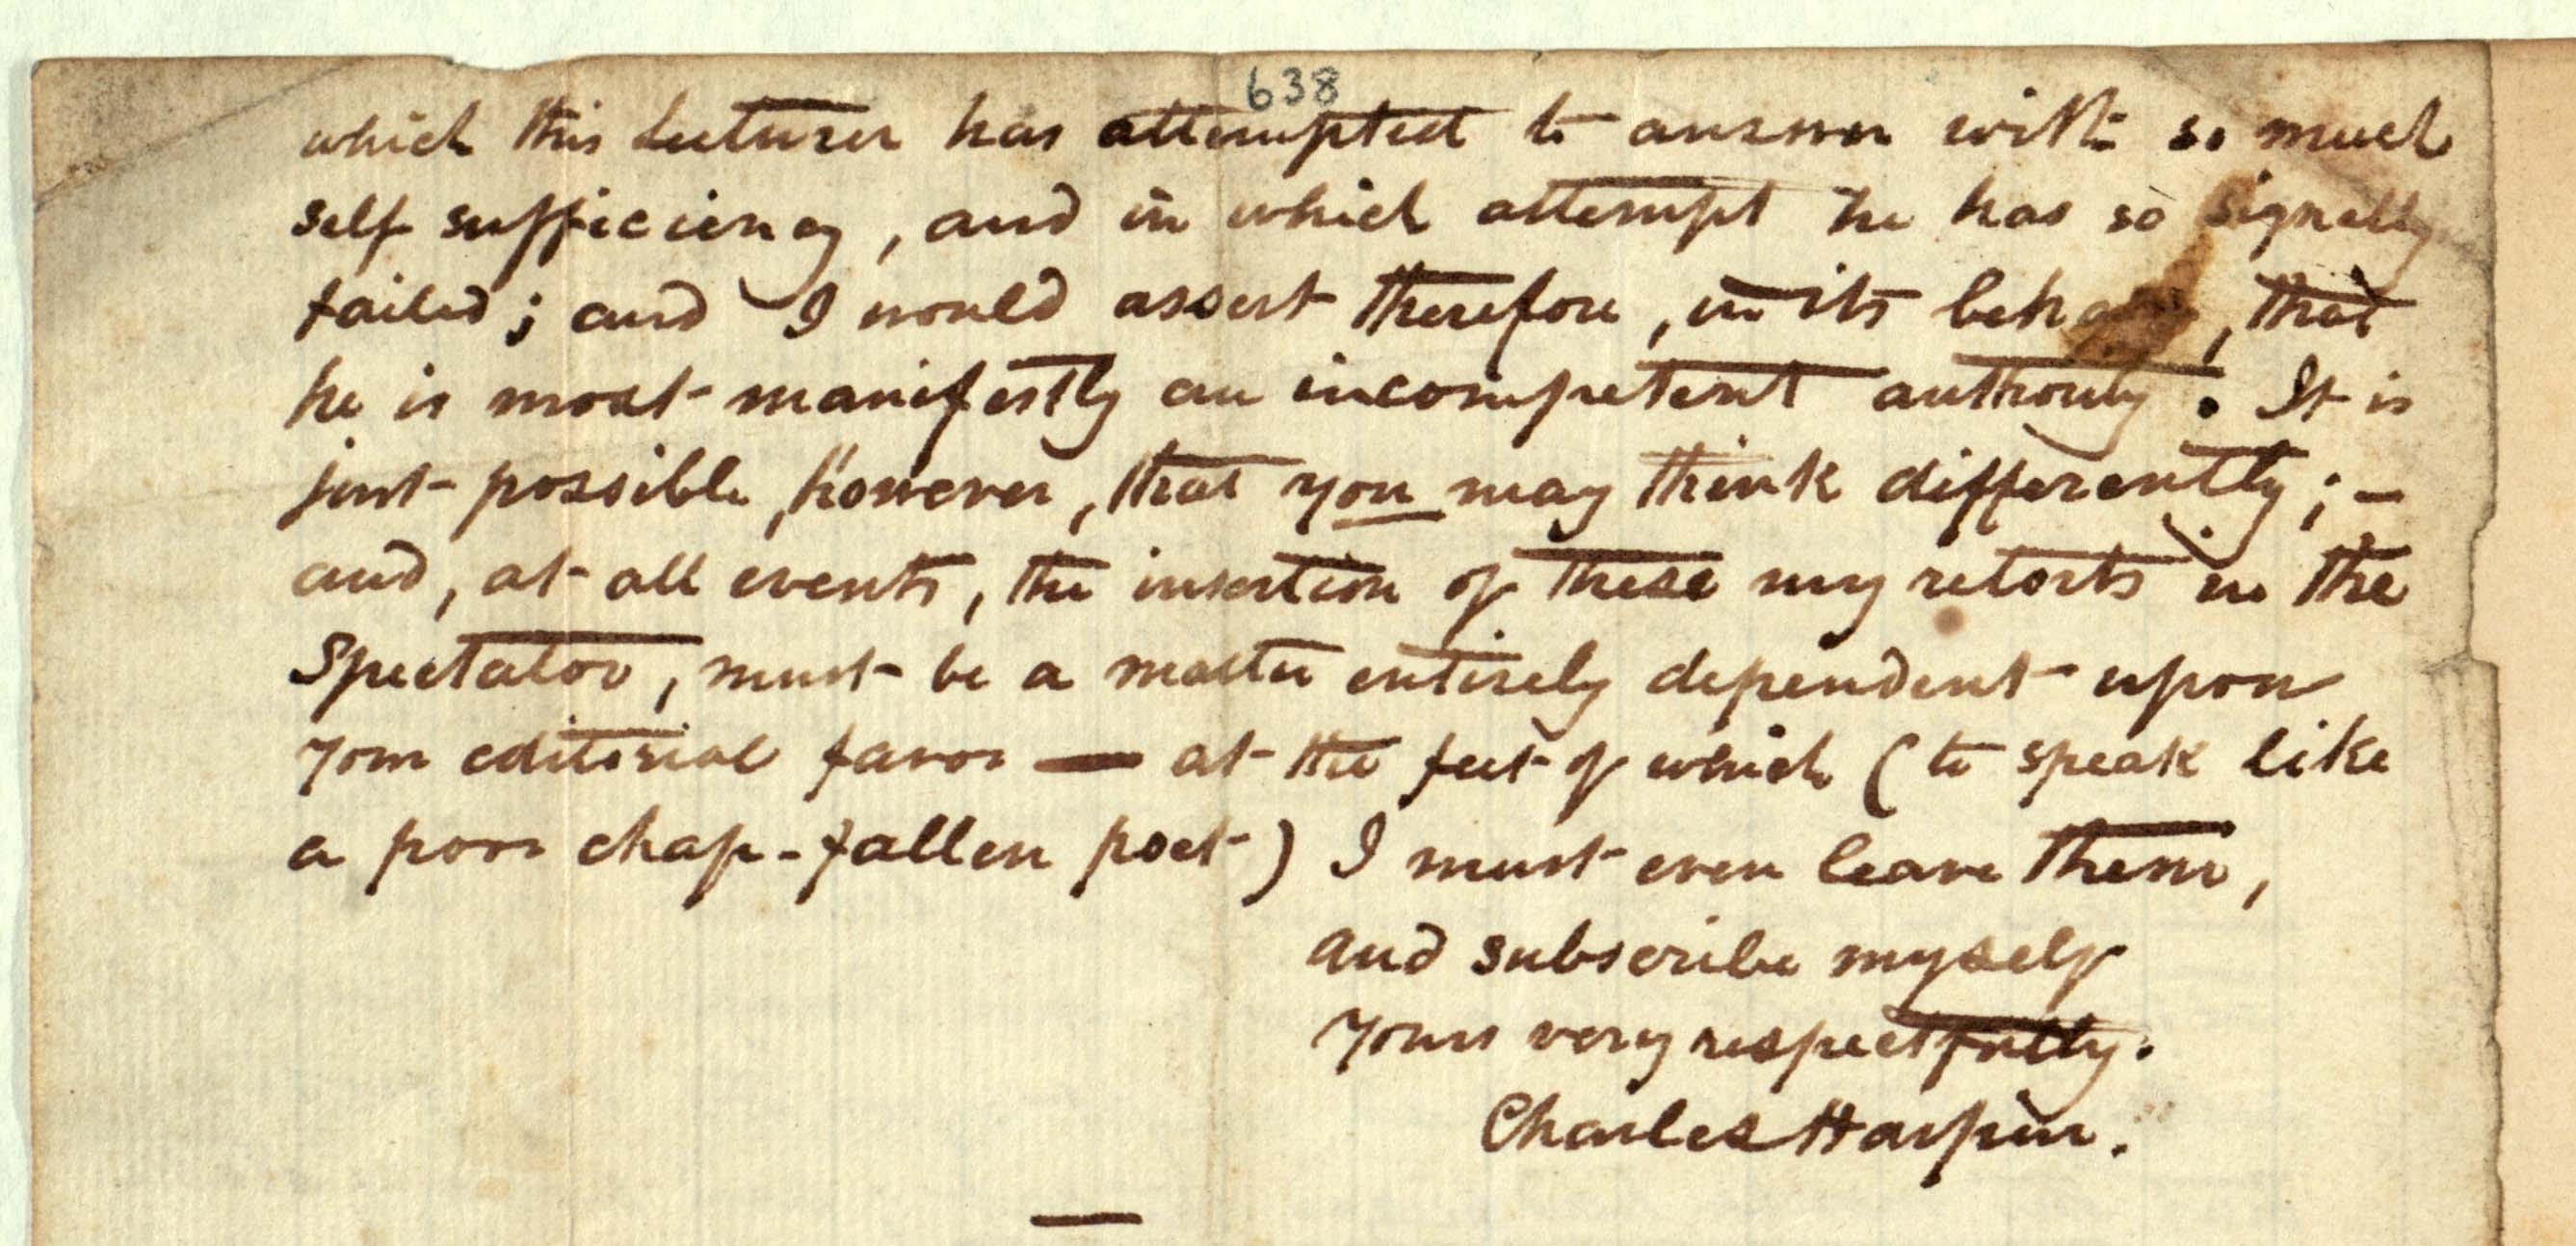 638
which this Lecturer has attempted to answer with so much
self sufficiency, and in which attempt he has so signally
failed; and I would assert therefore, in its behalf, that
he is most manifestly an incompetent authority. It is
just possible, however, that you may think differently; –
and, at all events, the insertion of these my retorts in the
Spectator, must be a matter entirely dependent upon
your editorial favor — at the feet of which (to speak like
a poor chap-fallen poet) I must even leave them,
and subscribe myself
Yours very respectfully.
Charles Harpur.
—